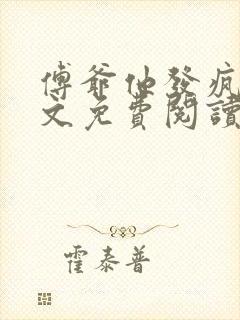 傅爺他發瘋
文免費閱讀
霍泰普